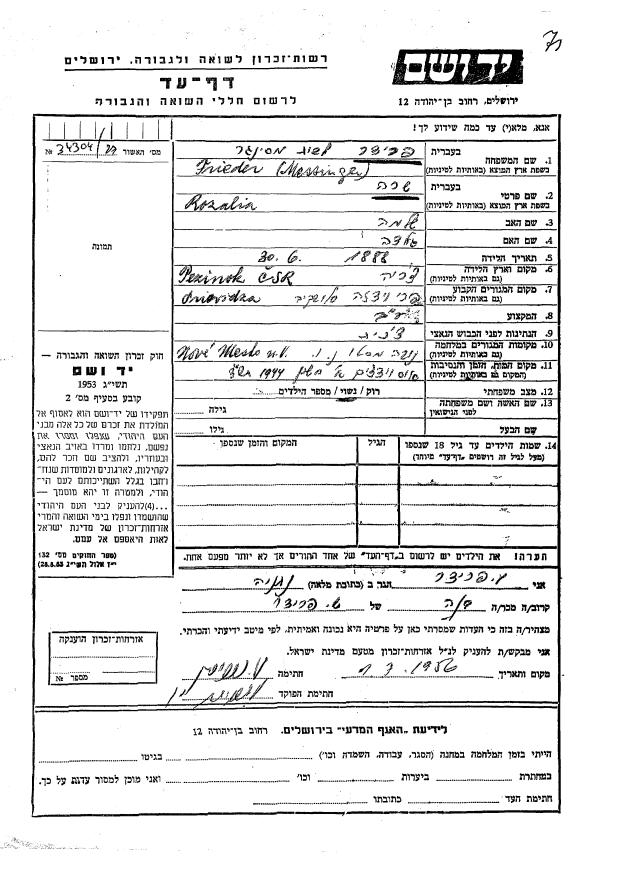 רשות-זכרון לשואה ולגבורה, ירושלים
דף-עד
לרשום חללי השואה והגבורה
יד ושם
ירושלים, רחוב בן-יהודה 12
אנא, מלא(י) עד כמה שידוע לך!
מס' האשור
34304/
№
תמונה
1. שם המשפחה
בעברית
בשפת ארץ המוצא (באותיות לטיניות)
פרידר
מסינגר
Frieder (Messinger)
2. שם פרטי
בעברית
בשפת ארץ המוצא (באותיות לטיניות)
שרה
Rozalia
3. שם האב
שלמה
4. שם האם
5. תאריך הלידה
30. 6. 1888
6. מקום וארץ הלידה
(גם באותיות לטיניות)
Pezinok ČSR
7. מקום המגורים הקבוע
(גם באותיות לטיניות)
8. המקצוע
9. הנתינות לפני הכבוש הנאצי
10. מקומות המגורים במלחמה
(גם באותיות לטיניות)
Nové Mesto n.V.
11. מקום המות, הזמן והנסיבות
(המקום גם באותיות לטיניות)
1944
12. מצב משפחתי
רוק/ נשוי/ מספר הילדים
13. שם האשה ושם משפחתה
לפני הנישואין
גילה
שם הבעל
גילו
14. שמות הילדים עד גיל 18 שנספו
(מעל לגיל זה רושמים "דף-עד" מיוחד)
הגיל
המקום והזמן שנספו
חוק זכרון השואה והגבורה —
יד ושם
תשי"ג 1953
קובע בסעיף מס' 2
תפקידו של יד-ושם הוא לאסוף אל
המולדת את זכרם של כל אלה מבני
העם היהודי, שנפלו ומסרו את
נפשם, נלחמו ומרדו באויב הנאצי
ובעוזריו, ולהציב שם וזכר להם,
לקהילות, לארגונים ולמוסדות שנח-
רבו בגלל השתייכותם לעם הי-
הודי, ולמטרה זו יהא מוסמך —
...(4)להעניק לבני העם היהודי
שהושמדו ונפלו בימי השואה והמרי
אזרחות-זכרון של מדינת ישראל
לאות היאספם אל עמם.
(ספר החוקים מס' 132
י"ז אלול תשי"ג 28.8.53)
הערה! את הילדים יש לרשום ב"דף-העד" של אחד ההורים אך לא יותר מפעם אחת.
אני
ע. פרידר
הגר ב (כתובת מלאה)
נתניה
קרוב/ה מכר/ה
של
פרידר
מצהיר/ה בזה כי העדות שמסרתי כאן על פרטיה היא נכונה ואמיתית, לפי מיטב ידיעתי והכרתי.
אני מבקש/ת להעניק לנ"ל אזרחות-זכרון מטעם מדינת ישראל.
מקום ותאריך
1956
חתימה
חתימת הפוקד
אזרחות-זכרון הוענקה
מספר №
לידיעת "האגף המדעי" בירושלים, רחוב בן-יהודה 12
הייתי בזמן המלחמה במחנה (הסגר, עבודה, השמדה וכו')
בגיטו
במחתרת
ביערות
וכו'
ואני מוכן למסור עדות על כך.
חתימת העד
כתובתו